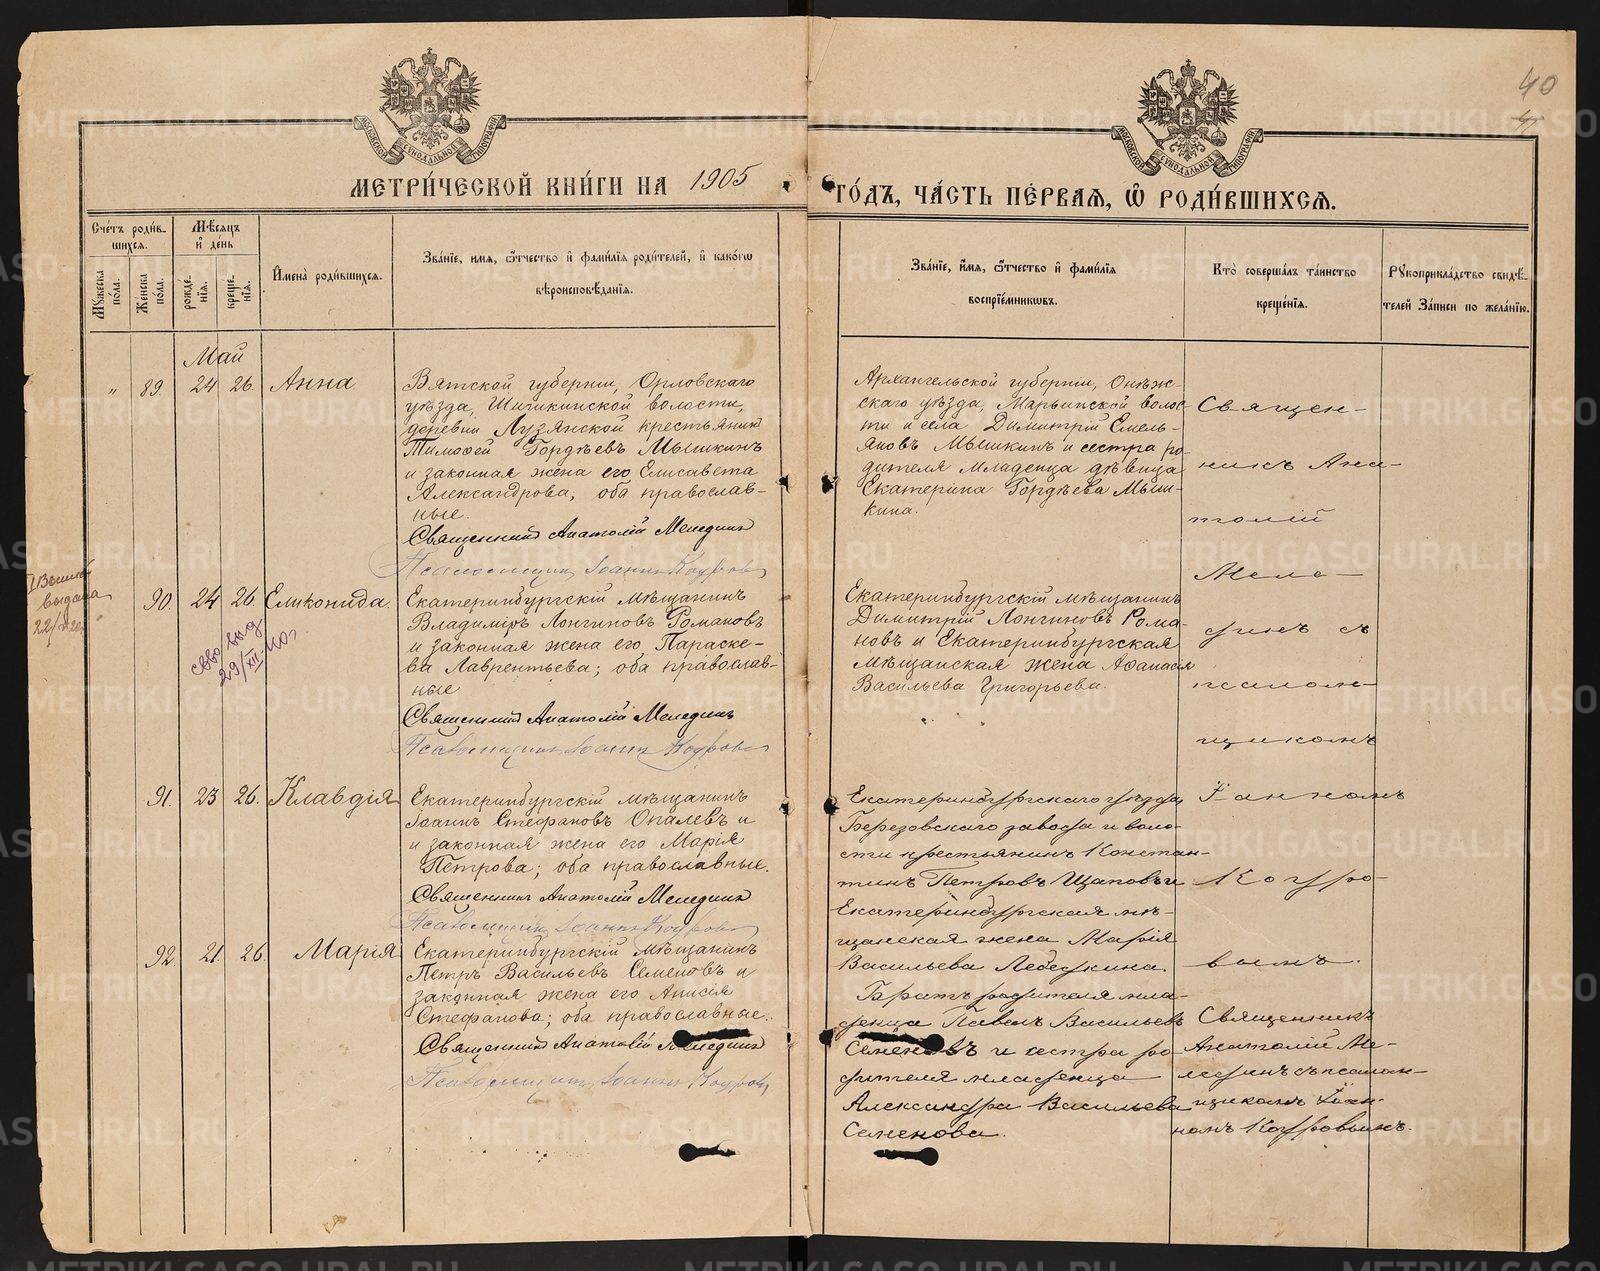 40
МОСКОВСКОЙ СѴНОДАЛЬНОЙ ТИПОГРАФІИ
МОСКОВСКОЙ СѴНОДАЛЬНОЙ ТИПОГРАФІИ
МЕТРИ́ЧЕСКОЙ КНИ́ГИ НА 1905
ГО́ДЪ, ЧА́СТЬ ПЕ́РВАЯ, Ѡ҆ РОДИ́ВШИХСЯ.
Сче́тъ роди́в-
шихся.
Му́жеска по́ла.
Же́нска по́ла.
Мѣ́сяцъ
и҆ де́нь
рожде́-
нїя.
креще́-
нїя.
И҆мена̀ роди́вшихся.
Зва́нїе, имя, ѻ҆́тчество и҆ фами́лїя роди́телей, и҆ како́гѡ
вѣроисповѣ́данїя.
Зва́нїе, и҆́мя, ѻ҆́тчество и҆ фами́лїя
воспрїе́мникѡвъ.
Кто̀ соверша́лъ та́инство
креще́нїя.
Рꙋкоприкла́дство свидѣ́-
телей За́писи по жела́нїю.
Май
" 89. 24 26. Анна.
Вятской губерніи, Орловскаго
уѣзда, Шичикинской волости,
деревни Лузянской крестьянинъ
Тимофей Гордѣевъ Мышкинъ
и законная жена его Елисавета
Александрова, оба православ-
ные.
Священникъ Анатолій Мелединъ
Псаломщикъ Іоаннъ Кодровъ
Архангельской губерніи, Онѣж-
скаго уѣзда, Марьинской волос-
ти и села Димитрій Емель-
яновъ Мышкинъ и сестра ро-
дителя младенца дѣвица
Екатерина Гордѣева Мыш-
кина.
Священ-
никъ Ана-
толій
Меле-
динъ съ
псалом-
щикомъ
Іоанномъ
Кодро-
вымъ.
выдана
90. 24 26. Еликонида.
29/XII
Екатеринбургскій мѣщанинъ
Владиміръ Лонгиновъ Романовъ
и законная жена его Параске-
ва Лаврентьева; оба православ-
ные
Священникъ Анатолій Мелединъ
Псаломщикъ Іоаннъ Кодровъ
Екатеринбургскій мѣщанинъ
Димитрій Лонгиновъ Рома-
новъ и Екатеринбургская
мѣщанская жена Афанасія
Васильева Григорьева.
91. 23 26. Клавдія
Екатеринбургскій мѣщанинъ
Іоаннъ Стефановъ Опалевъ и
и законная жена его Марія
Петрова; оба православные.
Священникъ Анатолій Мелединъ
Псаломщикъ Іоаннъ Кодровъ
Екатеринбургскаго уѣзда,
Березовскаго завода и воло-
сти крестьянинъ Констан-
тинъ Петровъ Щаповъ и
Екатеринбургская мѣ-
щанская жена Марія
Васильева Лебедкина.
92 21. 26. Марія
Екатеринбургскій мѣщанинъ
Петръ Васильевъ Семеновъ и
законная жена его Анисія
Стефанова; оба православные.
Священникъ Анатолій Мелединъ
Псаломщикъ Іоаннъ Кодровъ
Братъ родителя мла-
денца Павелъ Васильевъ
Семеновъ и сестра ро-
дителя младенца
Александра Васильева
Семенова.
Священникъ
Анатолій Ме-
лединъ съ псалом-
щикомъ Іоан-
номъ Кодровымъ.
METRIKI.GASO-URAL.RU